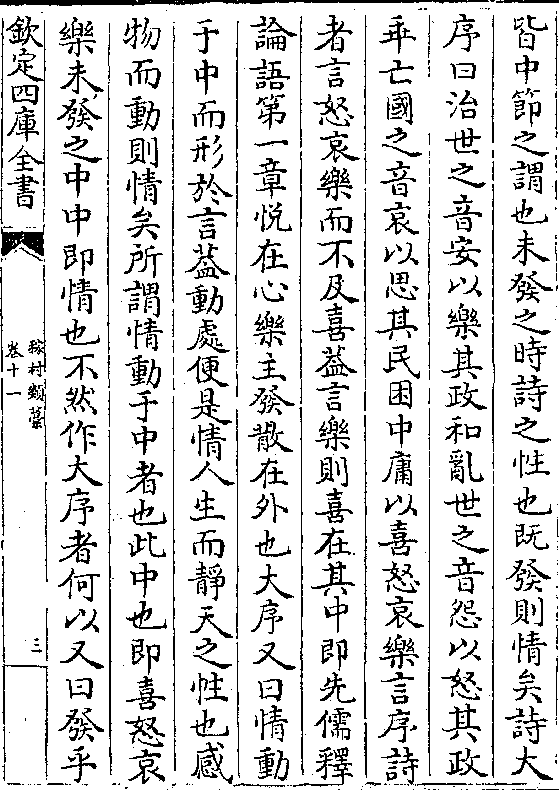 皆中節之謂也未發之時詩之性也既發則情矣詩大
序曰治世之音安以樂其政和亂世之音怨以怒其政
乖亡國之音哀以思其民困中庸以喜怒哀樂言序詩
者言怒哀樂而不及喜葢言樂則喜在其中即先儒釋
論語第一章悅在心樂主發散在外也大序又曰情動
于中而形於言葢動處便是情人生而靜天之性也感
物而動則情矣所謂情動于中者也此中也即喜怒哀
樂未發之中中即情也不然作大序者何以又曰發乎
欽定四庫全書
稼村類藁
卷十一
三